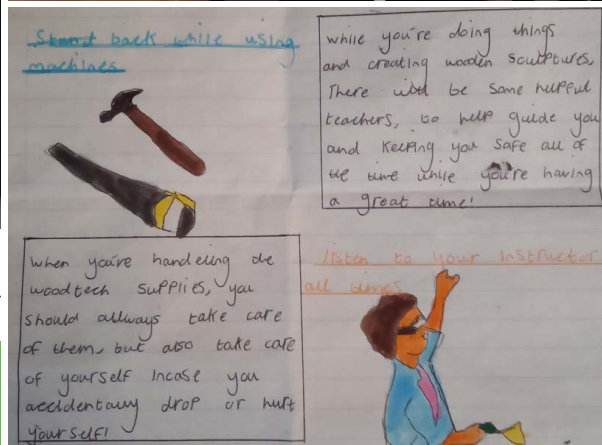 Stand back while using
machines
while you're doing things
and creating wooden sculptures,
There will be some helpful
teachers, to help guide you
and keeping you safe all of
the time while you're having
a great time!
when you're handeling the
woodtech supplies, you
should allways take care
of them, but also take care
of yourself incase you
accidentally drop or hurt
yourself!
listen to your instructor
all times